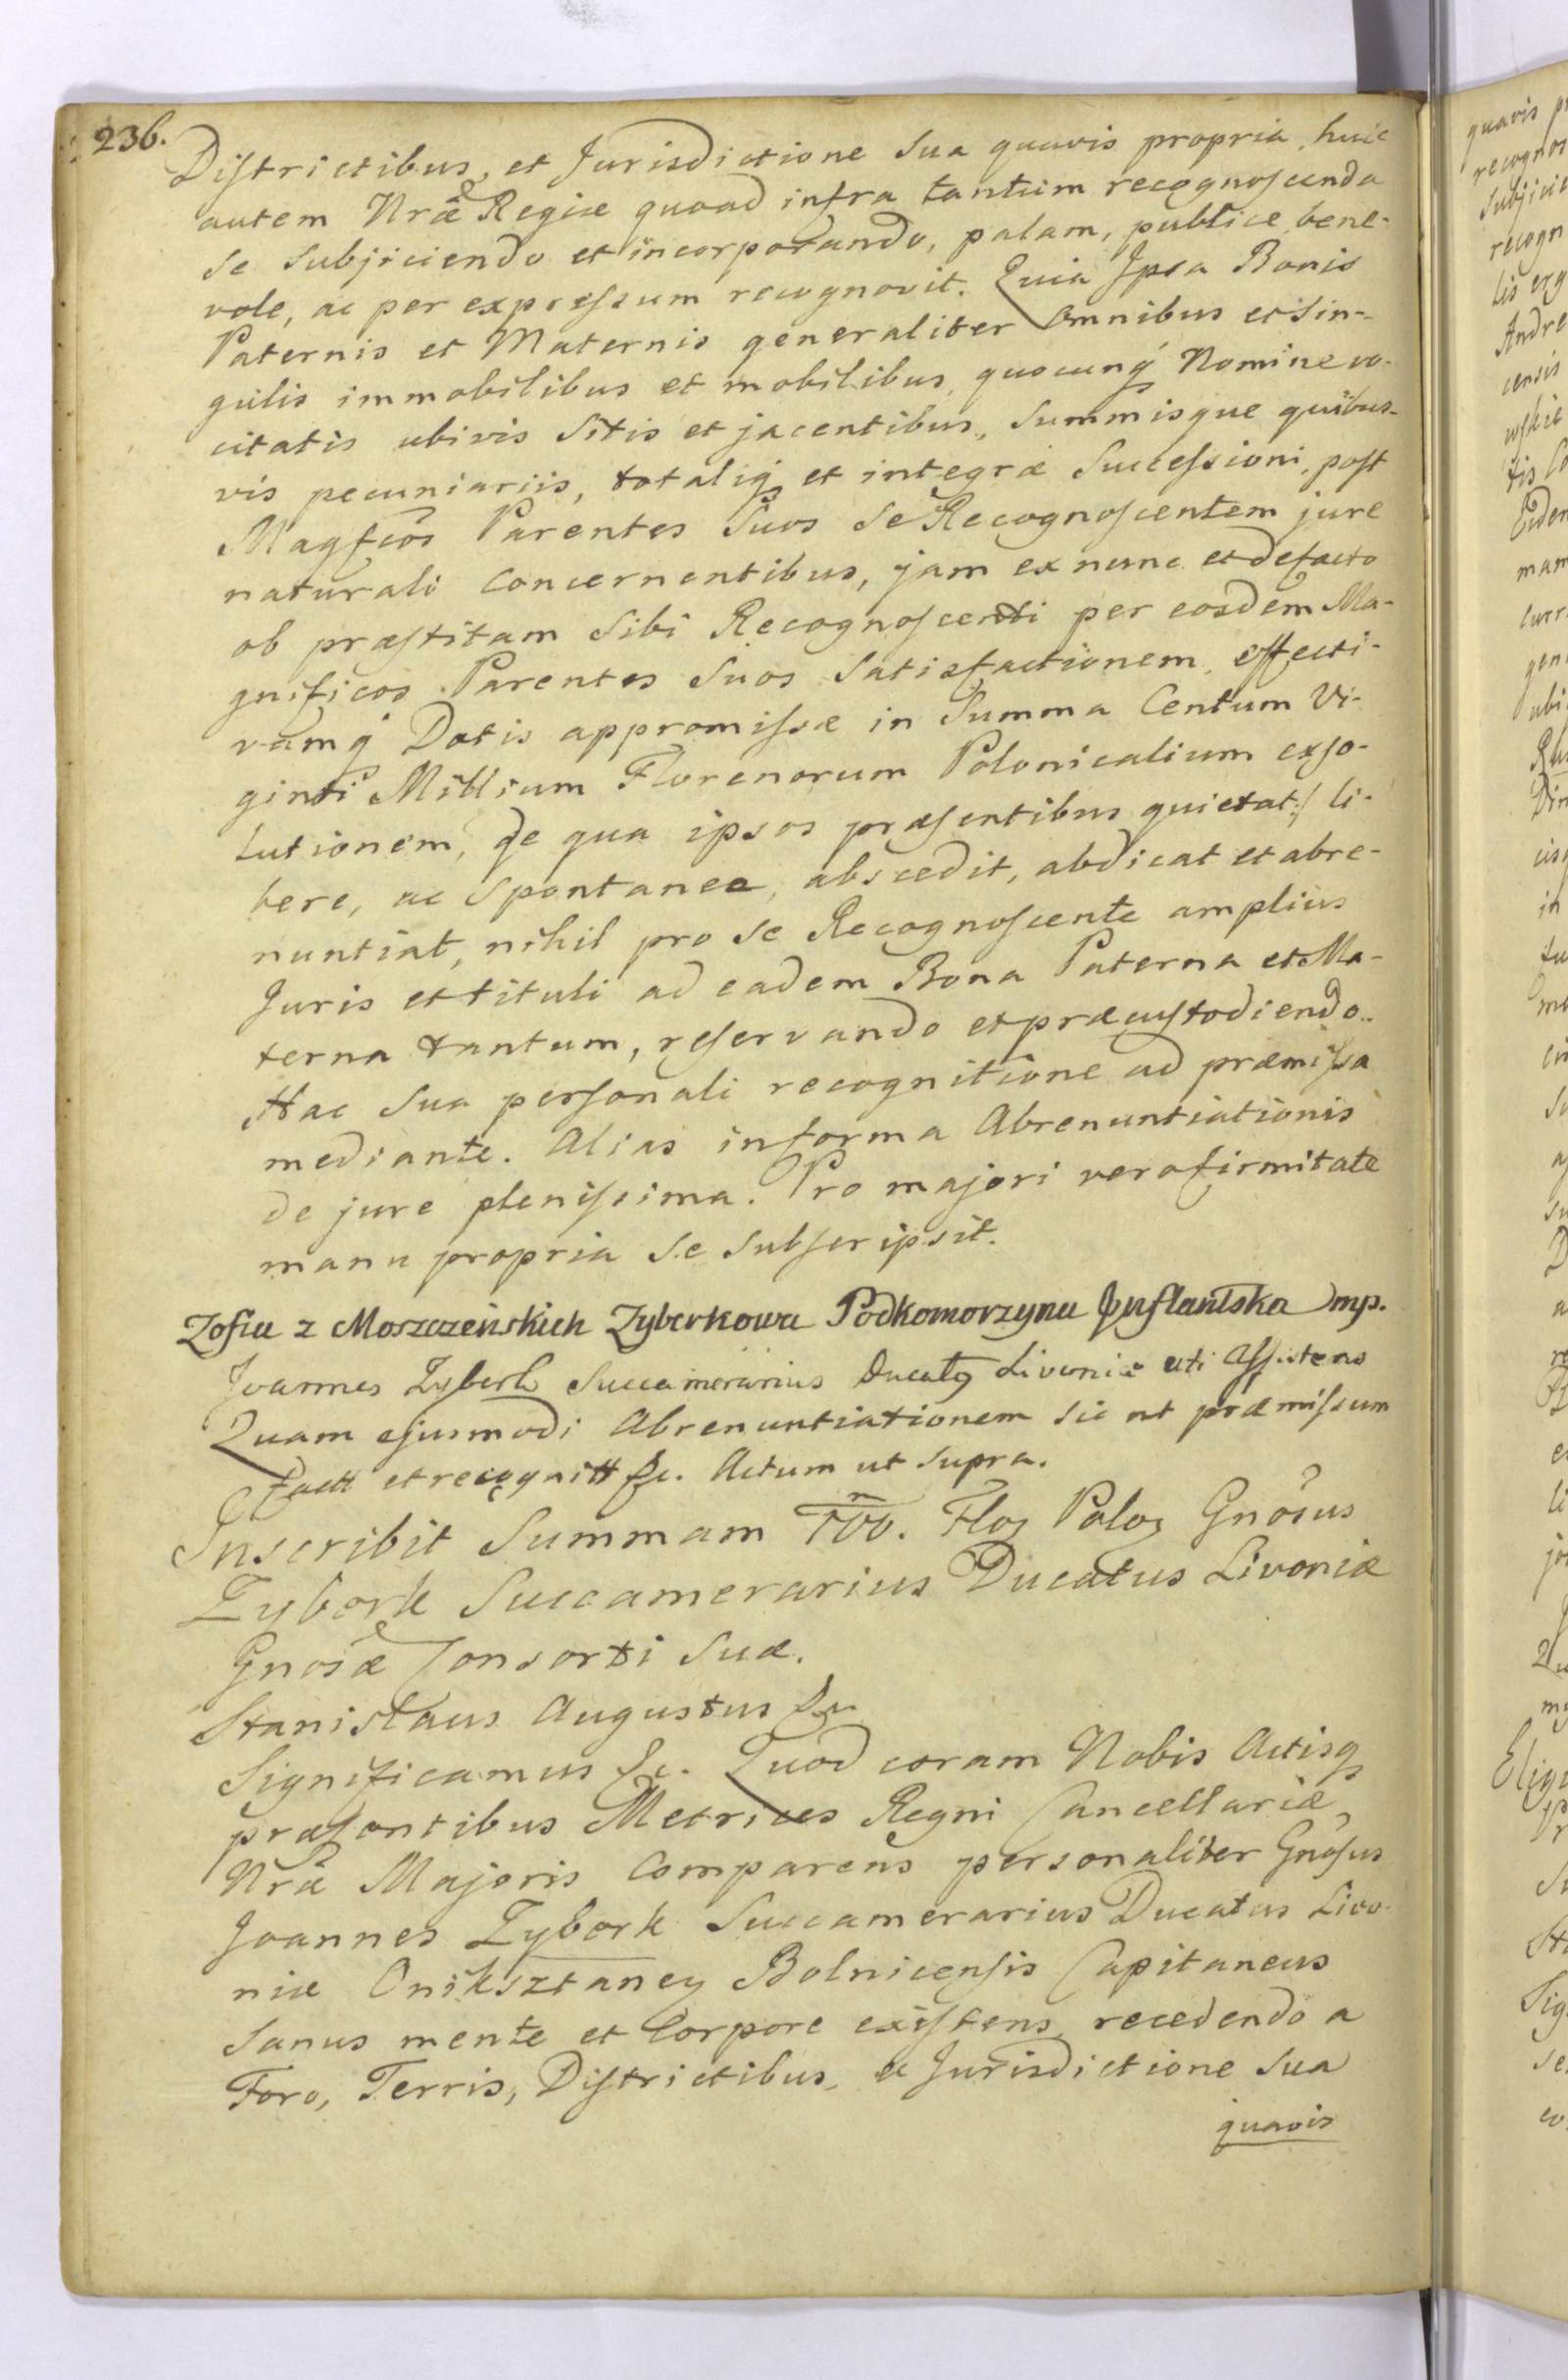 236.
Districtibus, et Jurisdictione Sua quavis propria, huic
autem Nrae Regiae quoad infra tantum recognoscenda
se subjiciendo et incorporando, palam, publice, bene-
vole, ac per expressum recognovit. Quia Ipsa Bonis
Paternis et Maternis generaliter Omnibus et Sin-
gulis immobilibus et mobilibus, quocunq Nomine vo-
citatis ubivis Sitis et jacentibus, Summisque quibus-
vis pecuniariis, totaliq et integrae Successioni, post
Magfcos Parentes Suos Se Recognoscentem jure
naturali concernentibus, jam ex nunc et defacto
ob praestitam Sibi Recognoscenti per eosdem Ma-
gnificos Parentes Suos Satisfactionem, effecti-
vamq Dotis appromissae in Summa Centum Vi-
ginti Millium Florenorum Polonicalium exso-
lutionem, de qua ipsos praesentibus quietat:/ li-
bere, ac Spontanee, abscedit, abdicat et abre-
nuntiat, nihil pro Se Recognoscente amplius
Juris et tituli ad eadem Bona Paterna et Ma-
terna tantum, reservando et praecustodiendo.
Hac Sua personali recognitione ad praemissa
mediante. Alias in forma Abrenuntiationis
de jure plenissima. Pro majori vero firmitate
manu propria Se Subscripsit.
Zofia z Moszczeńskich Zyberkowa Podkomorzyna Inflantska mp.
Joannes Zyberk Succamerarius Ducatq Livoniae uti Assistens
Quam ejusmodi Abrenuntiationem sic ut praemissum
factt et recognitt &c. Actum ut Supra.
Inscribit Summam 100. Floz Poloz Gnosus
Zyberk Succamerarius Ducatus Livoniae
Gnosae Consorti Suae.
Stanislaus Augustus &c
Significamus &c. Quod coram Nobis Actisq
praesentibus Metrices Regni Cancellariae
Nrae Majoris Comparens personaliter Gnosus
Joannes Zyberk Succamerarius Ducatus Livo-
niae Oniksztaney Bolnicensis Capitaneus
Sanus mente et Corpore existens, recedendo a
Foro, Terris, Districtibus, et Jurisdictione Sua
quavis